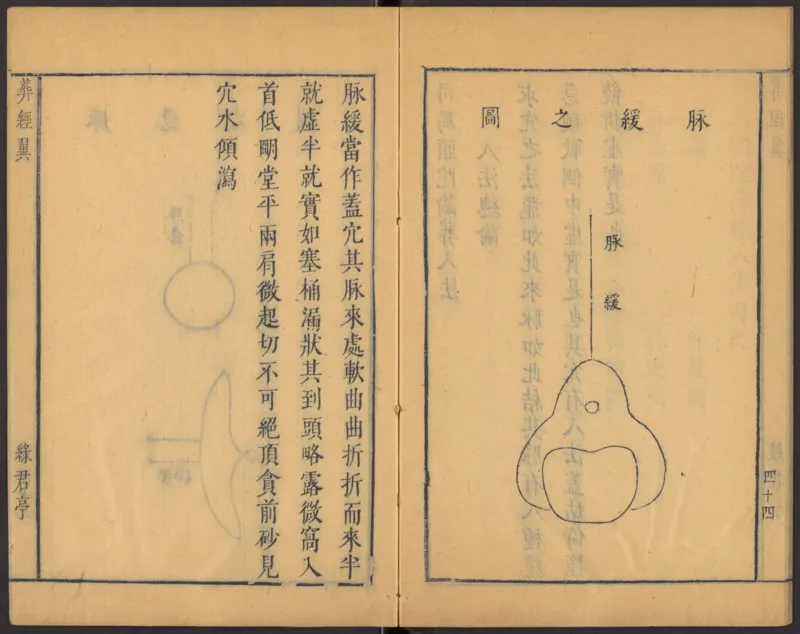 四十四
脉緩之圖
脉緩
脉緩當作蓋穴其脉來處軟曲曲折折而來半
就虛半就實如塞桶漏狀其到頭略露微窩入
首低明堂平兩肩微起切不可絕頂貪前砂見
穴水傾瀉
葬經翼
綠君亭